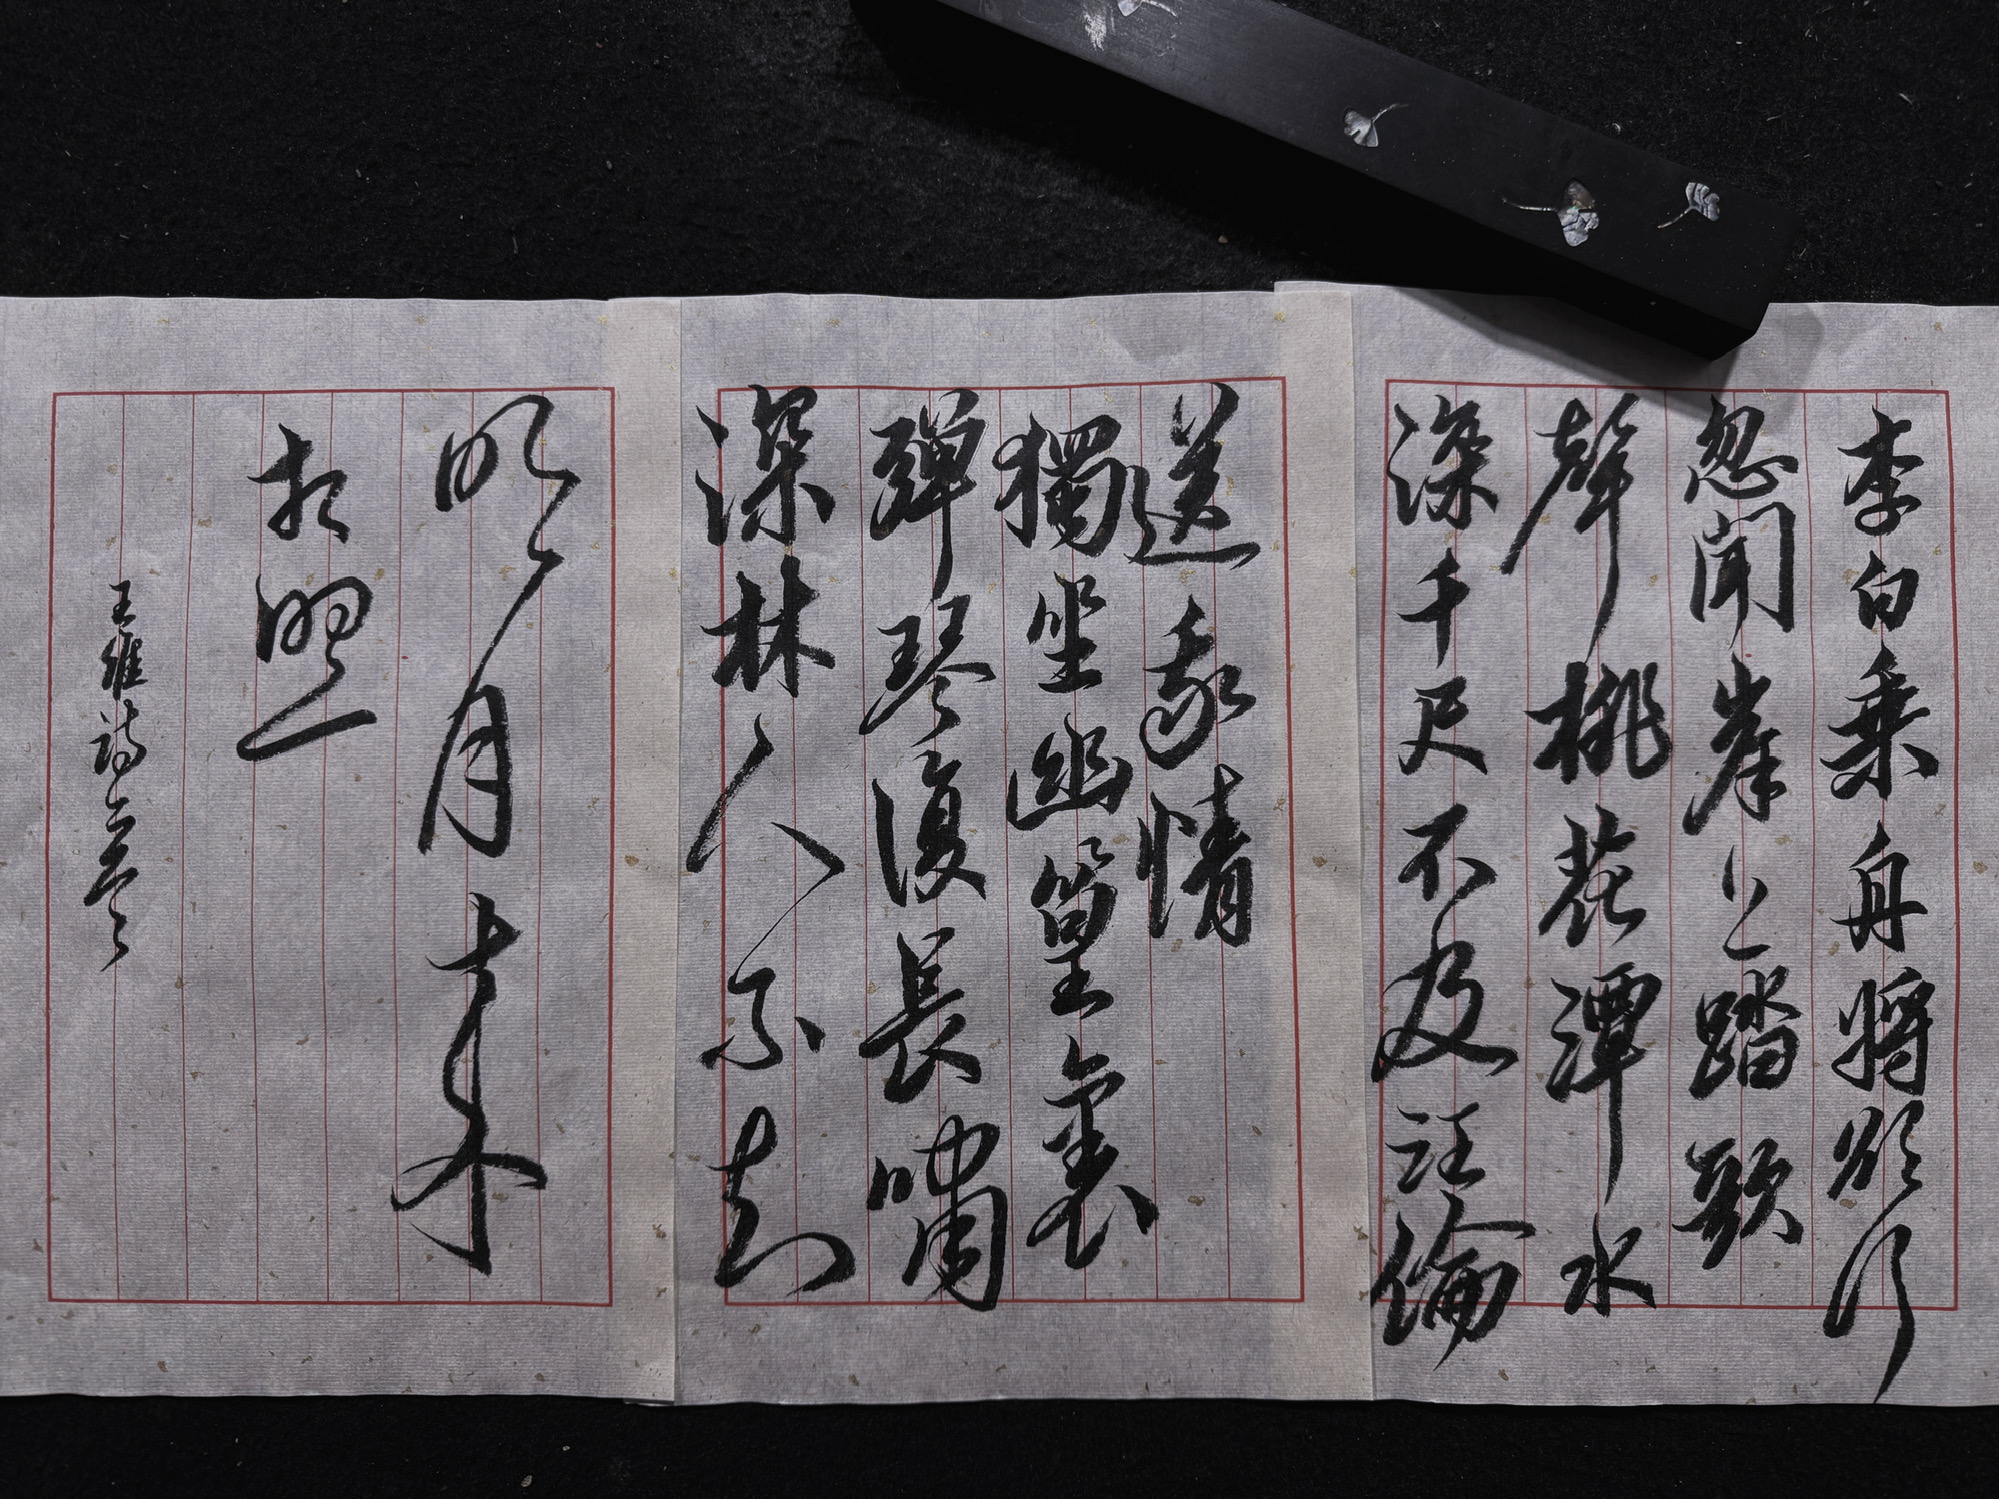 李白乘舟將欲行
忽聞岸上踏歌
聲桃花潭水
深千尺不及汪倫
送我情
獨坐幽篁裏
彈琴復長嘯
深林人不知
明月来
相照
王維詩